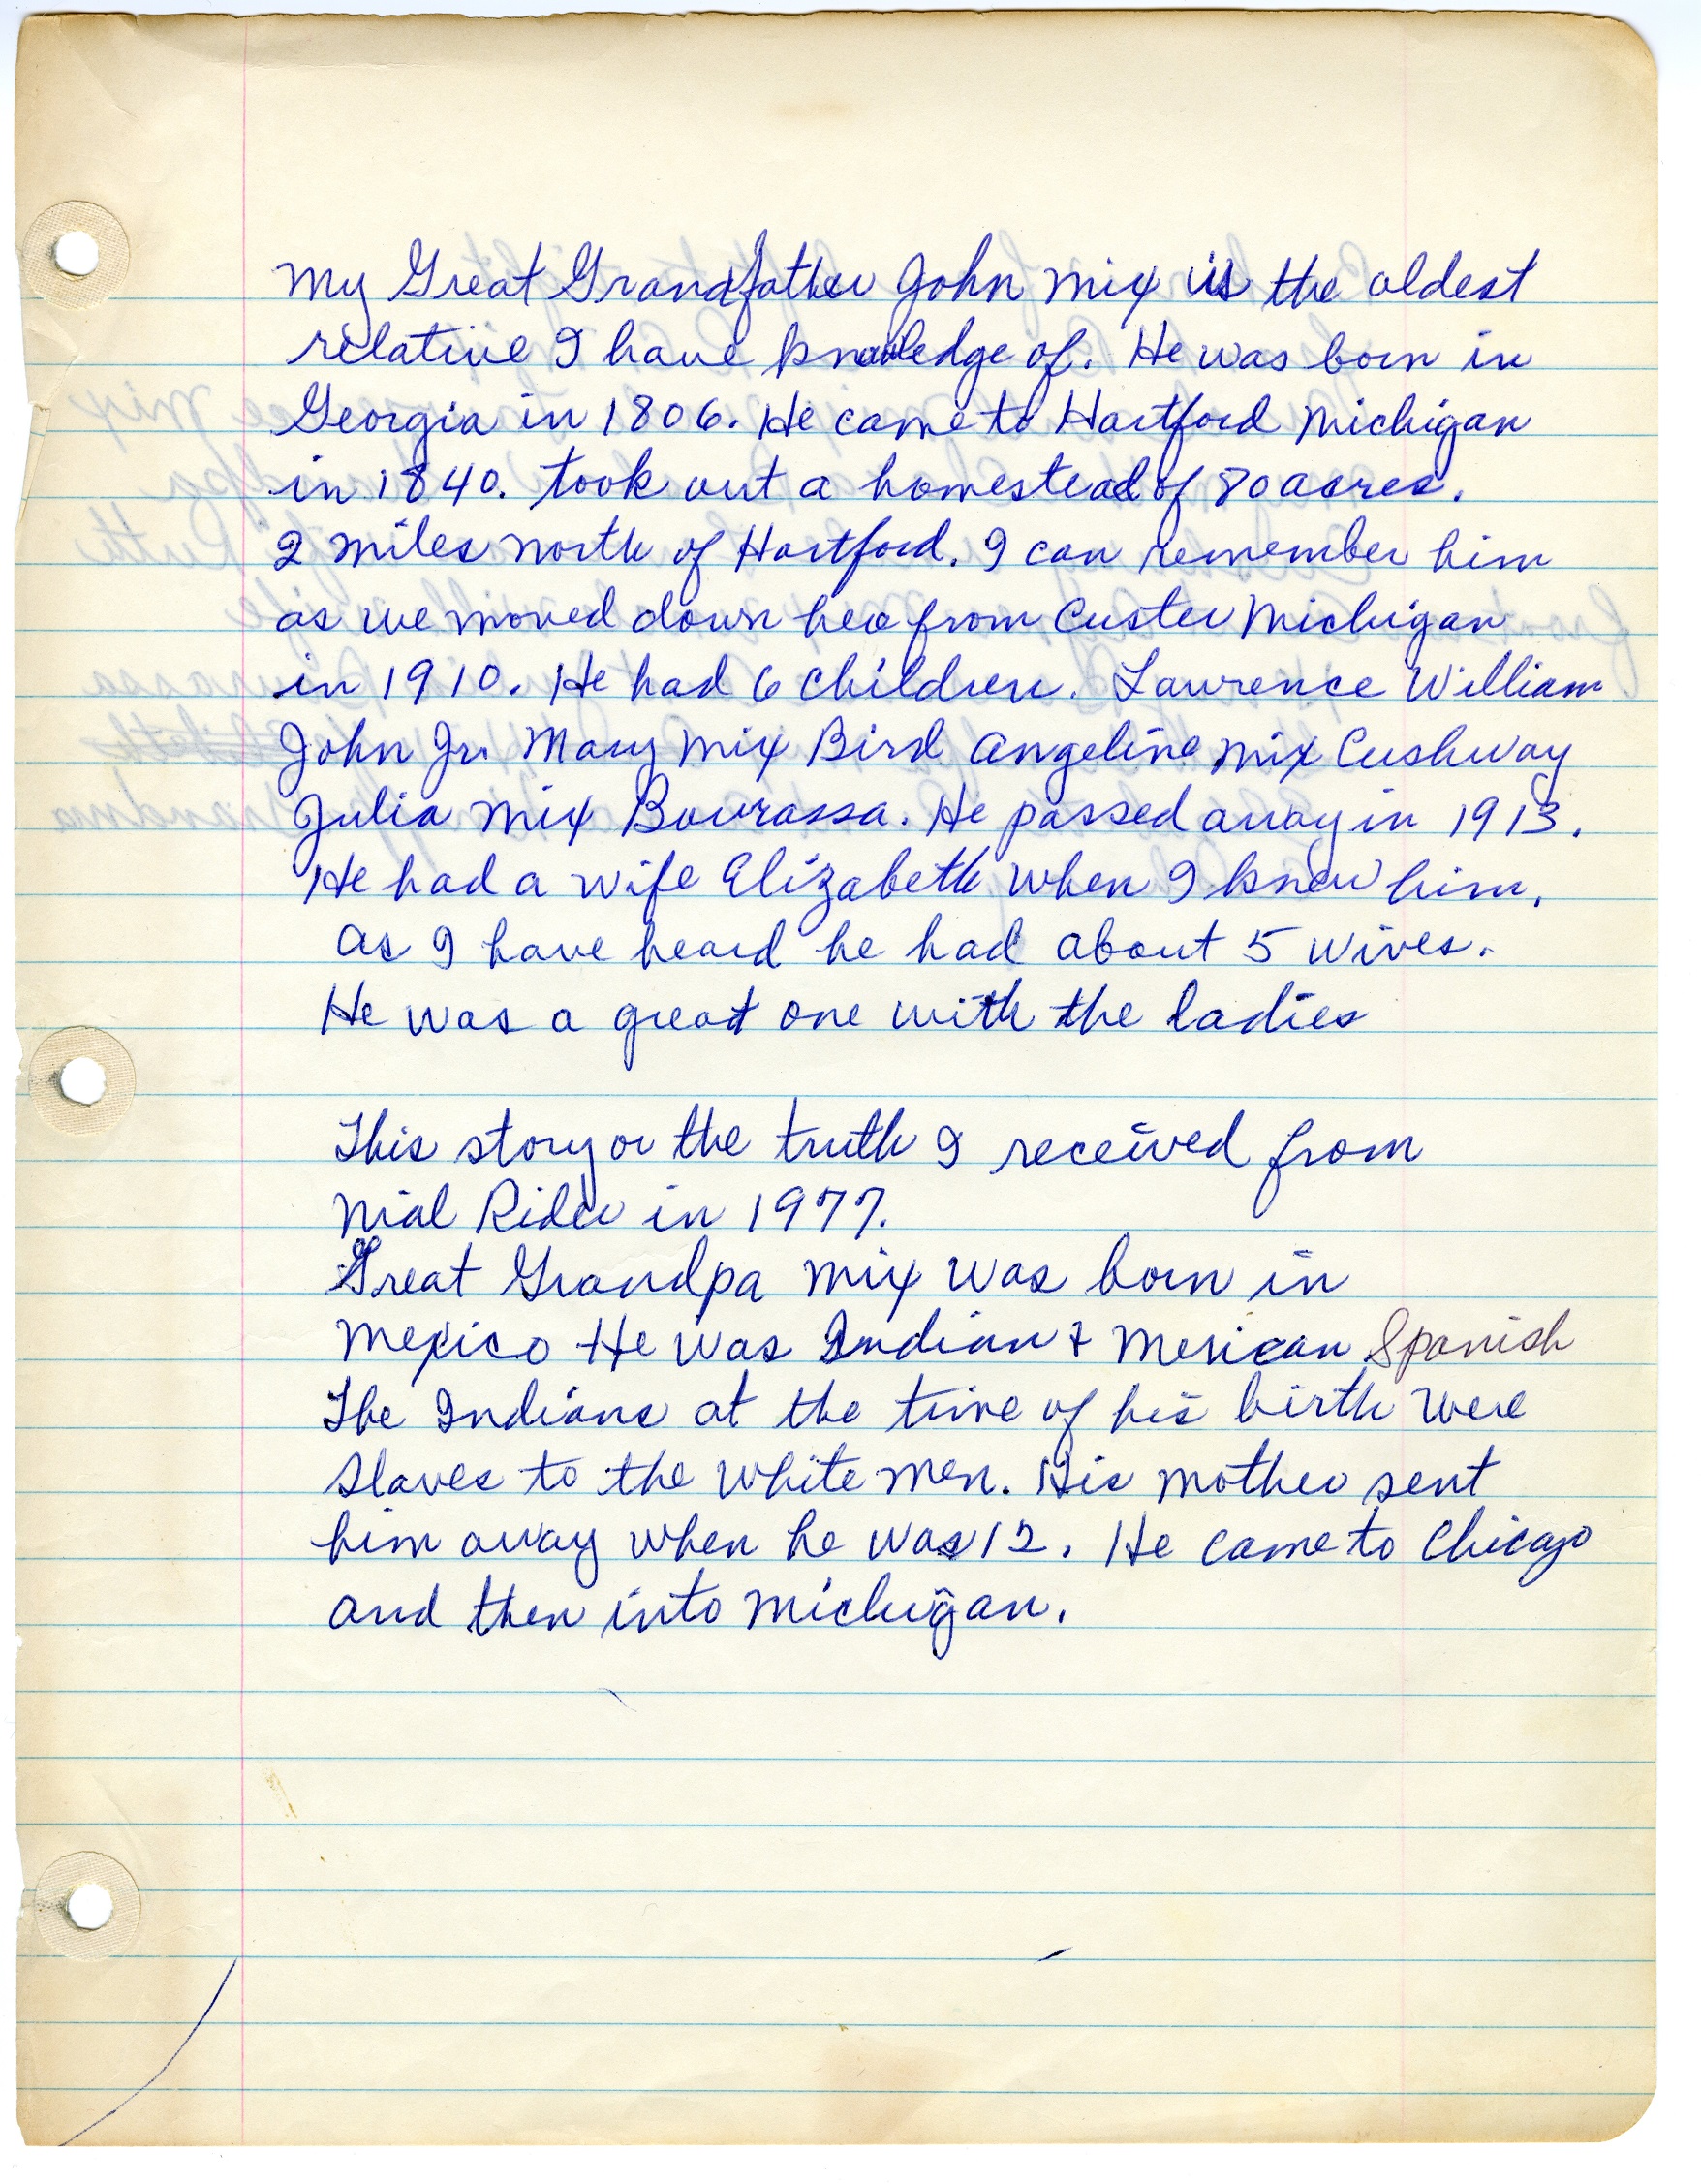 My Great Grandfather John Mix is the oldest
relative I have knowledge of. He was born in
Georgia in 1806. He came to Hartford Michigan
in 1840. took out a homestead of 80 acres.
2 miles north of Hartford. I can remember him
as we moved down here from Custer Michigan
in 1910. He had 6 children. Lawrence William
John Jr. Mary Mix Bird Angeline Mix Cushway
Julia Mix Bourassa. He passed away in 1913.
He had a wife Elizabeth when I knew him.
As I have heard he had about 5 wives.
He was a great one with the ladies
This story or the truth I received from
Nial Rider in 1977.
Great Grandpa Mix was born in
Mexico He was Indian & Mexican Spanish
The Indians at the time of his birth were
slaves to the white men. His mother sent
him away when he was 12. He came to Chicago
and then into Michigan.